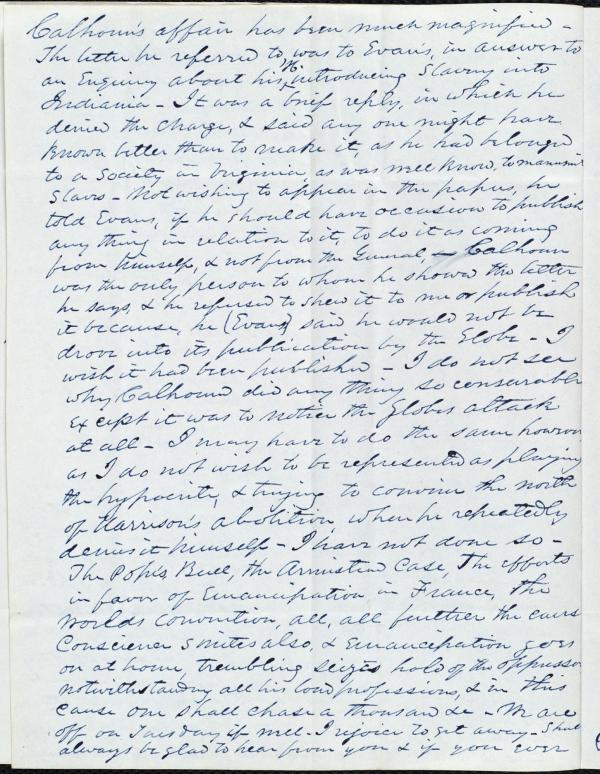 Calhoun's affair has been much magnified -
The letter he referred to was to Evans, in answer to
an Enquiry about his, H. introducing Slavery into
Indiania - It was a brief reply, in which he
denied the charge, & said any one might have
known better than to make it, as he had belonged
to a Society in Virginia, as was well know, to manumit
Slaves - Not wishing to appear in the papers, he
told Evans, if he should have occasion to publish
any thing in relation to it, to do it as coming
from himself, & not from the General, - Calhoun
was the only person to whom he showed the letter
he says, & he refused to shew it to me or publish
it because, he (Evans) said he would not be
drove into its publication by the Globe - I
wish it had been published - I do not see
why Calhoun did any thing so censurable
Except it was to notice the Globes attack
at all - I may have to do the same however
as I do not wish to be represented as playing
the hypocrite, & trying to convince the north
of Harrison's abolition when he repeatedly
denies it himself - I have not done so -
The Pope's Bull, the Armisted Case, The efforts
in favor of Emancipation in France, the
Worlds Convention, all, all further the cause
Conscience smites also, & Emancipation goes
on at home, trembling seizes hold of the oppressor
notwithstanding all his loud professions, & in this
cause one shall chase a thousand &c - We are
off on Tuesday if well. I rejoice to get away - Shall
always be glad to hear from you & if you ever